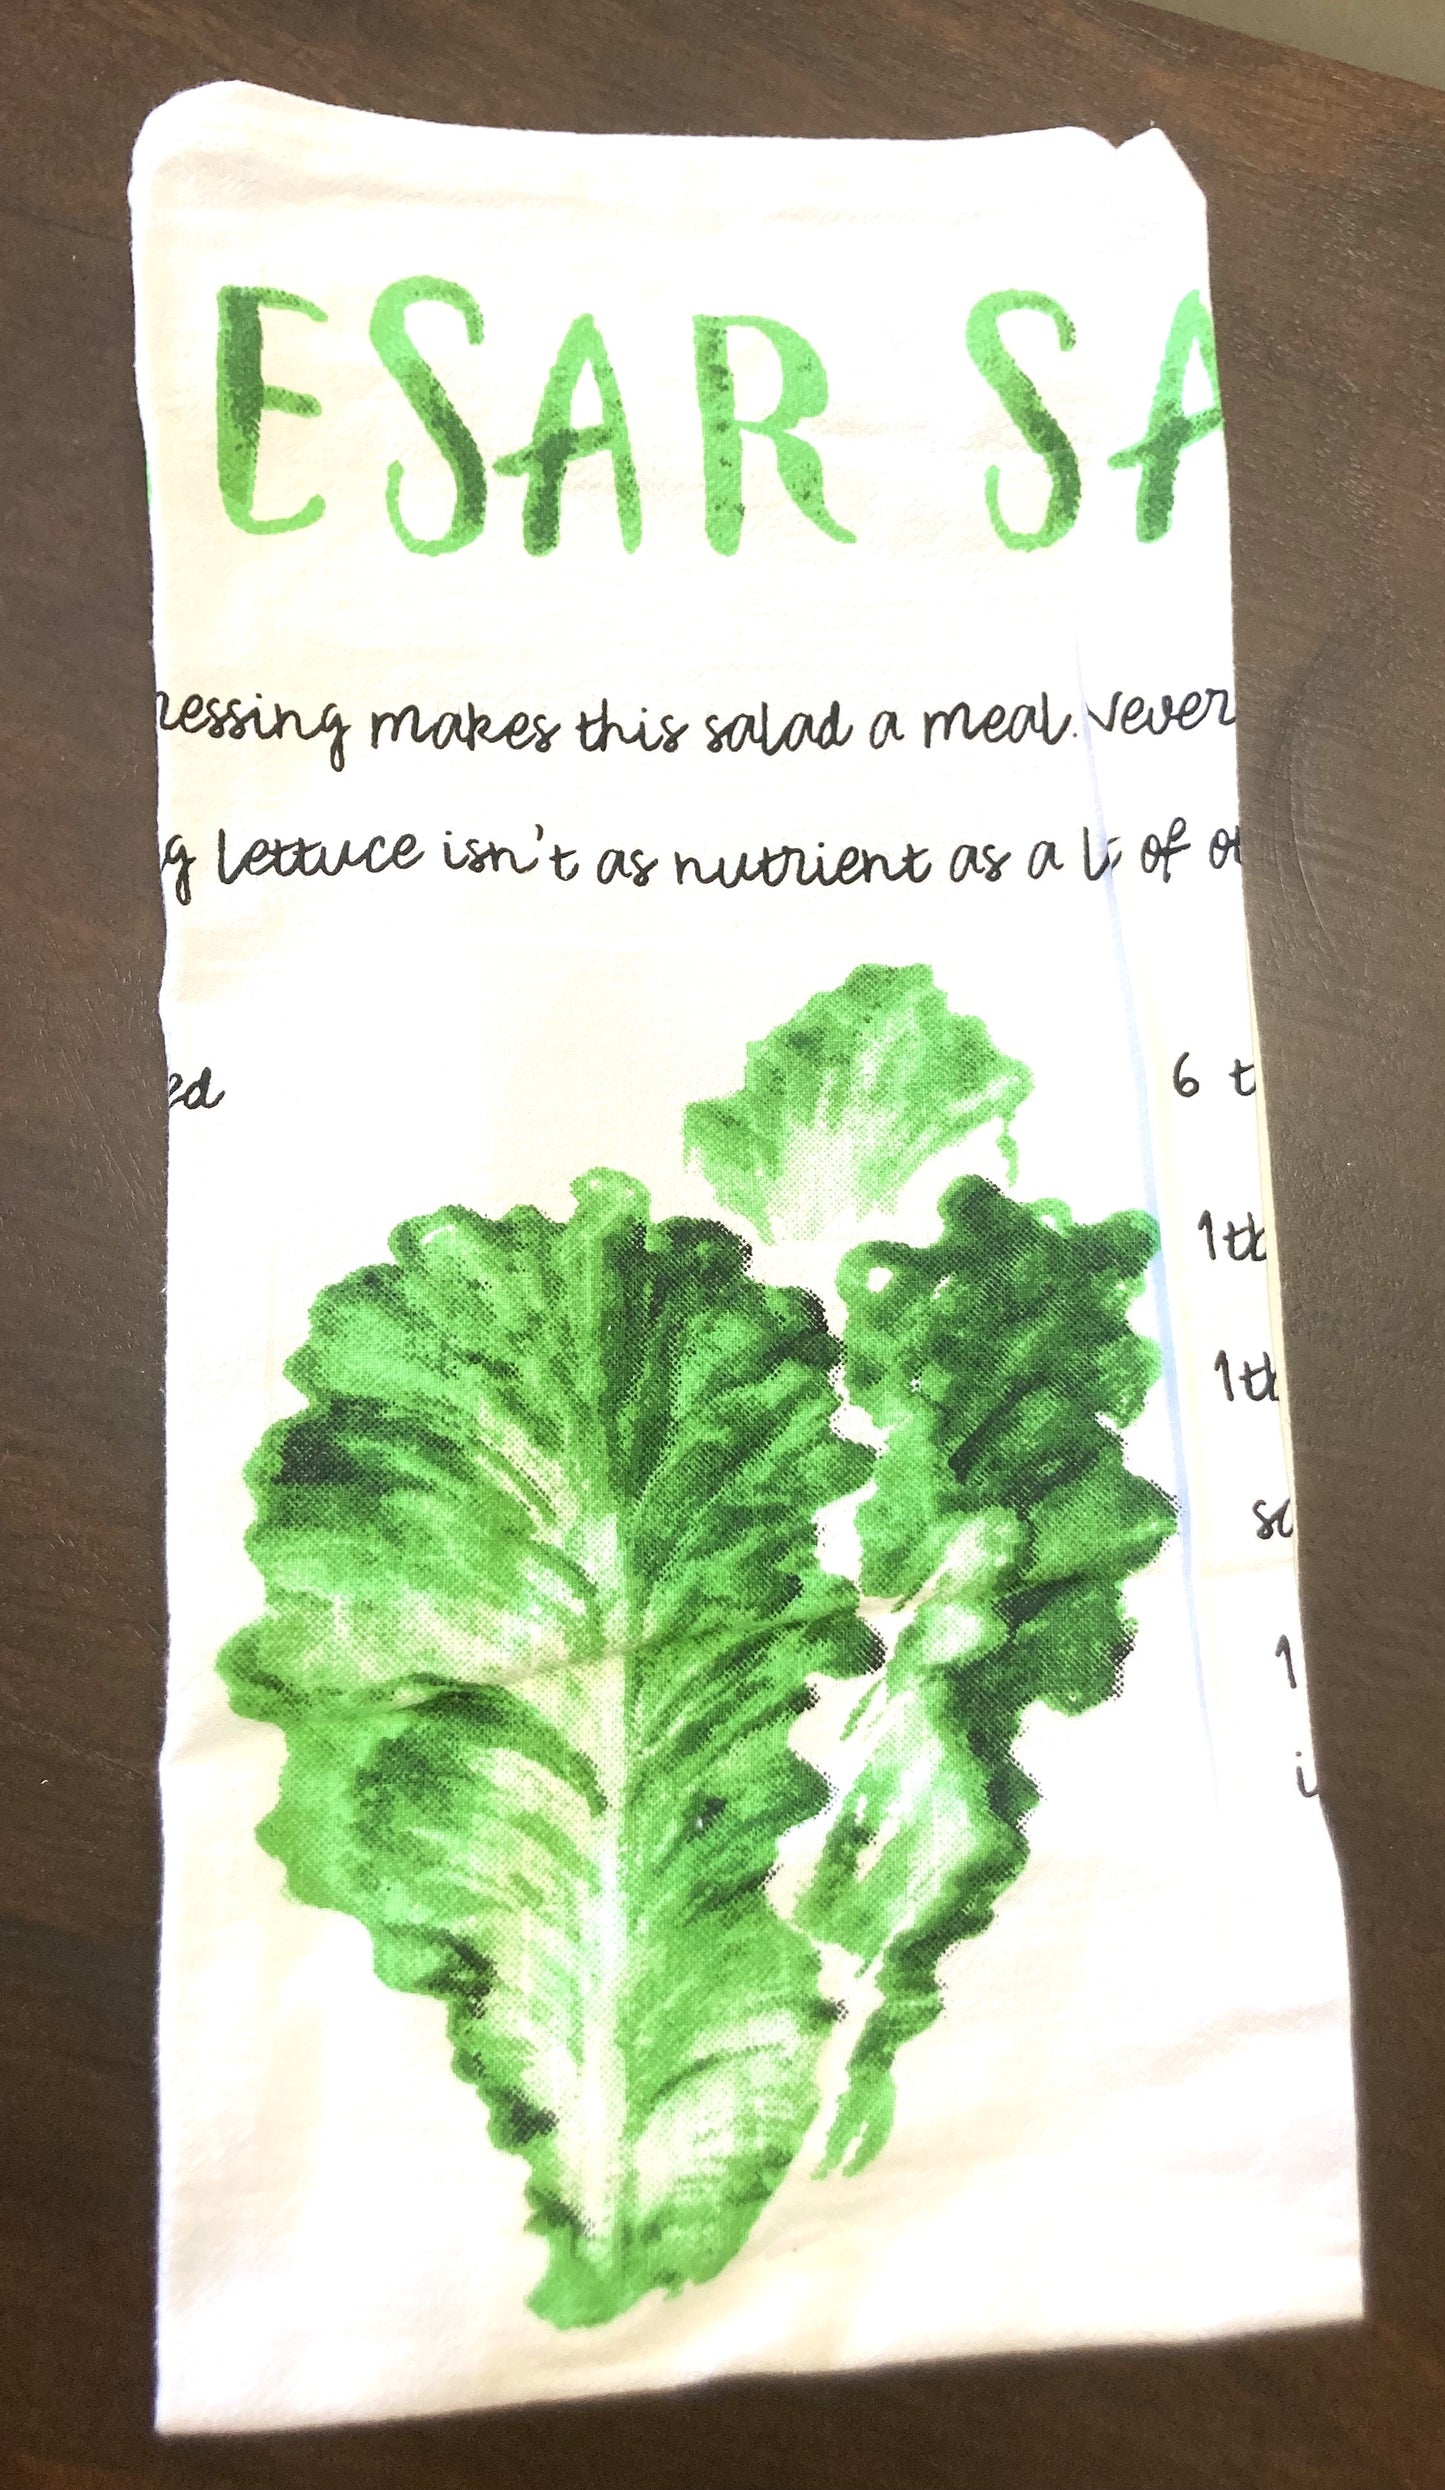 ESAR SA
ressing makes this salad a meal. Never
g lettuce isn't as nutrient as a of
ed
6 t
1 tb
1 tb
1